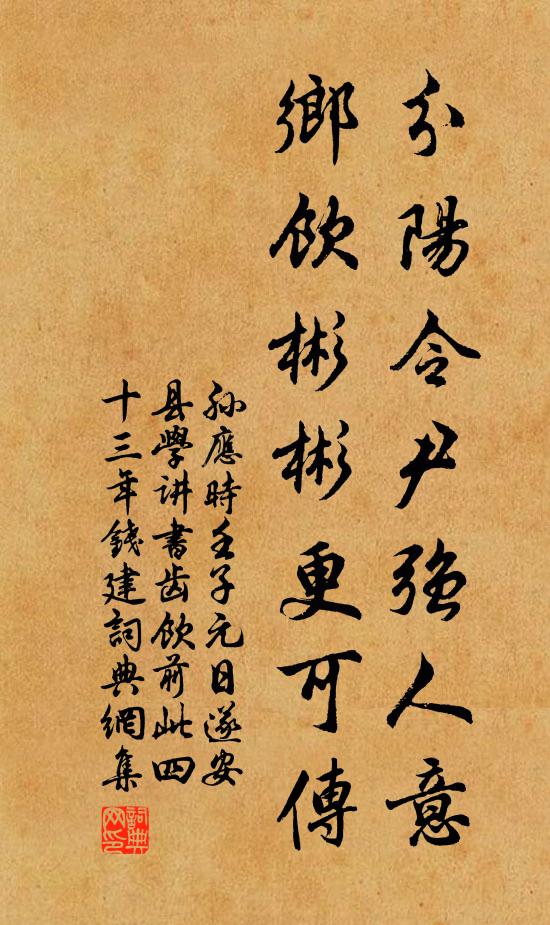 分陽令尹強人意
鄉飲彬彬更可傳
孫應時壬子元日遂安
县學讲書齿飲前此四
十三年錢建詞典網集
詞典网印